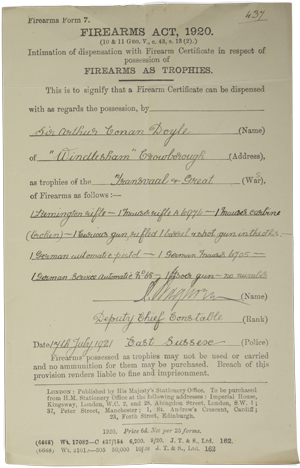 Firearms Form 7.
437
FIREARMS ACT, 1920.
(10 & 11 Geo. V., c. 43, s. 13 (2).)
Intimation of dispensation with Firearm Certificate in respect of
possession of
FIREARMS AS TROPHIES.
This is to signify that a Firearm Certificate can be dispensed
with as regards the possession, by
Sir Arthur Conan Doyle (Name)
of "Windlesham" Crowborough (Address),
as trophies of the Transvaal & Great (Wars),
of Firearms as follows:—
1 Remington rifle — 1 Mauser rifle — 1 Mauser carbine
(broken) — 1 curious gun, rifled 1 barrel & shot gun in the other —
1 German automatic pistol — 1 German Mauser
1 German Service automatic No 68 — 1 Boer gun — no
(Name)
Deputy Chief Constable (Rank)
Date July 1921 East Sussex (Police)
Firearms possessed as trophies may not be used or carried
and no ammunition for them may be purchased. Breach of this
provision renders liable to fine and imprisonment.
LONDON: Published by His Majesty's Stationery Office. To be purchased
from H.M. Stationery Office at the following addresses: Imperial House,
Kingsway, London, W.C. 2, and 28, Abingdon Street, London, S.W. 1;
37, Peter Street, Manchester; 1, St. Andrew's Crescent, Cardiff;
23, Forth Street, Edinburgh.
1920. Price 6d. Net per 25 forms.
J. T. & S., Ltd. 162
J. T. & S., Ltd. 163